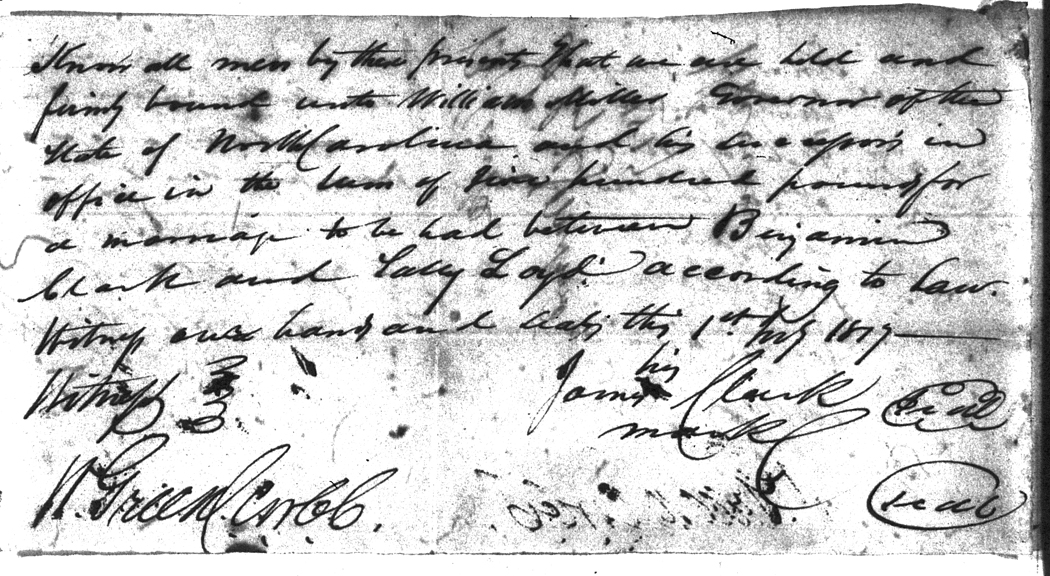 Know all men by these presents that we are held and
firmly bound unto William Miller Governor of the
State of North Carolina and his successors in
office in the sum of five hundred pounds for
a marriage to be had between Benjamin
Clark and Salley Loyd. according to Law.
Witness our hands and seals this 1st July 1817
Witness
his
James Clark seal
mark
W. Green Cobb. seal